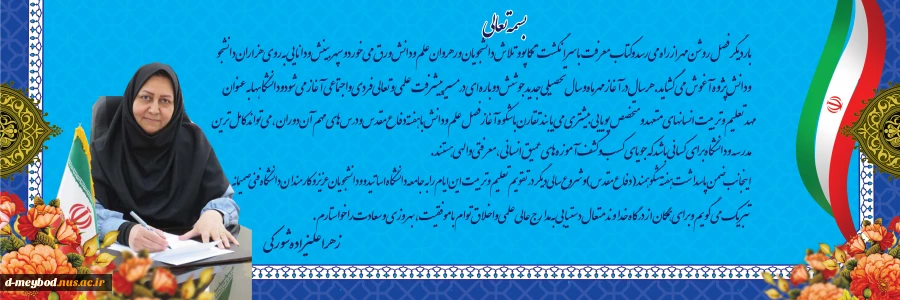 بسمه تعالی
بار دیگر فصل روشن مهر از راه می رسد و کتاب معرفت با سرانگشت تکاپو و تلاش دانشجویان و رهروان علم و دانش ورق می خورد و سپهر بینش و دانایی به روی هزاران دانشجو
و دانش پژوه آغوش می گشاید. هر سال در آغاز مهرماه و سال تحصیلی جدید جوشش دوباره ای در مسیر پیشرفت علمی و تعالی فردی و اجتماعی آغاز می شود و دانشگاه به عنوان
مهد تعلیم و تربیت انسانهای متعهد و متخصص پویایی بیشتری می یابد تقارن باشکوه آغاز فصل علم و دانش با هفته دفاع مقدس و درس های مهم آن دوران، می تواند کامل ترین
مدرسه و دانشگاه برای کسانی باشد که جویای کسب و کشف آموزه های عمیق انسانی، معرفتی و الهی هستند.
اینجانب ضمن پاسداشت هفته شکوهمند (دفاع مقدس) و شروع سالی دیگر در تقویم تعلیم و تربیت این ایام را به جامعه دانشگاه اساتید و دانشجویان عزیز و کارمندان دانشگاه فنی صمیمانه
تبریک می گویم و برای همگان از درگاه خداوند متعال دستیابی به مدارج عالی علمی و اخلاق توام با موفقیت، بهروزی و سعادت را خواستارم.
زهرا علیزاده شورکی
d-meybod.nus.ac.ir